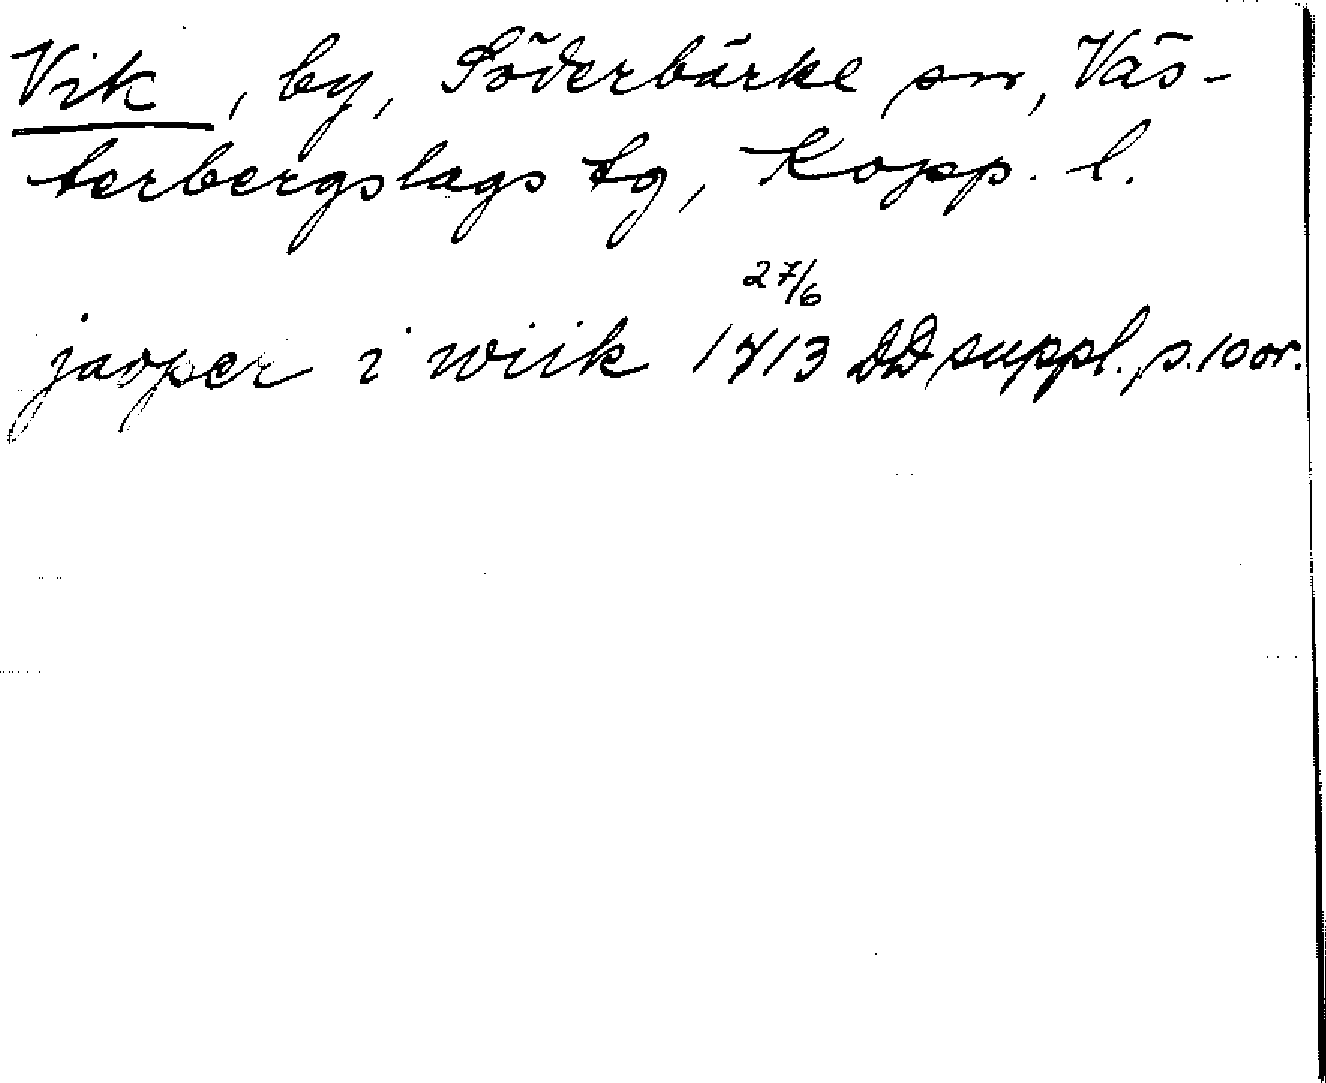 Vik, by, Söderbärke sn, Väs-
terbergslags tg, Kopp. l.
27/6
jasper i wiik 1713 DD suppl., s. 100r.